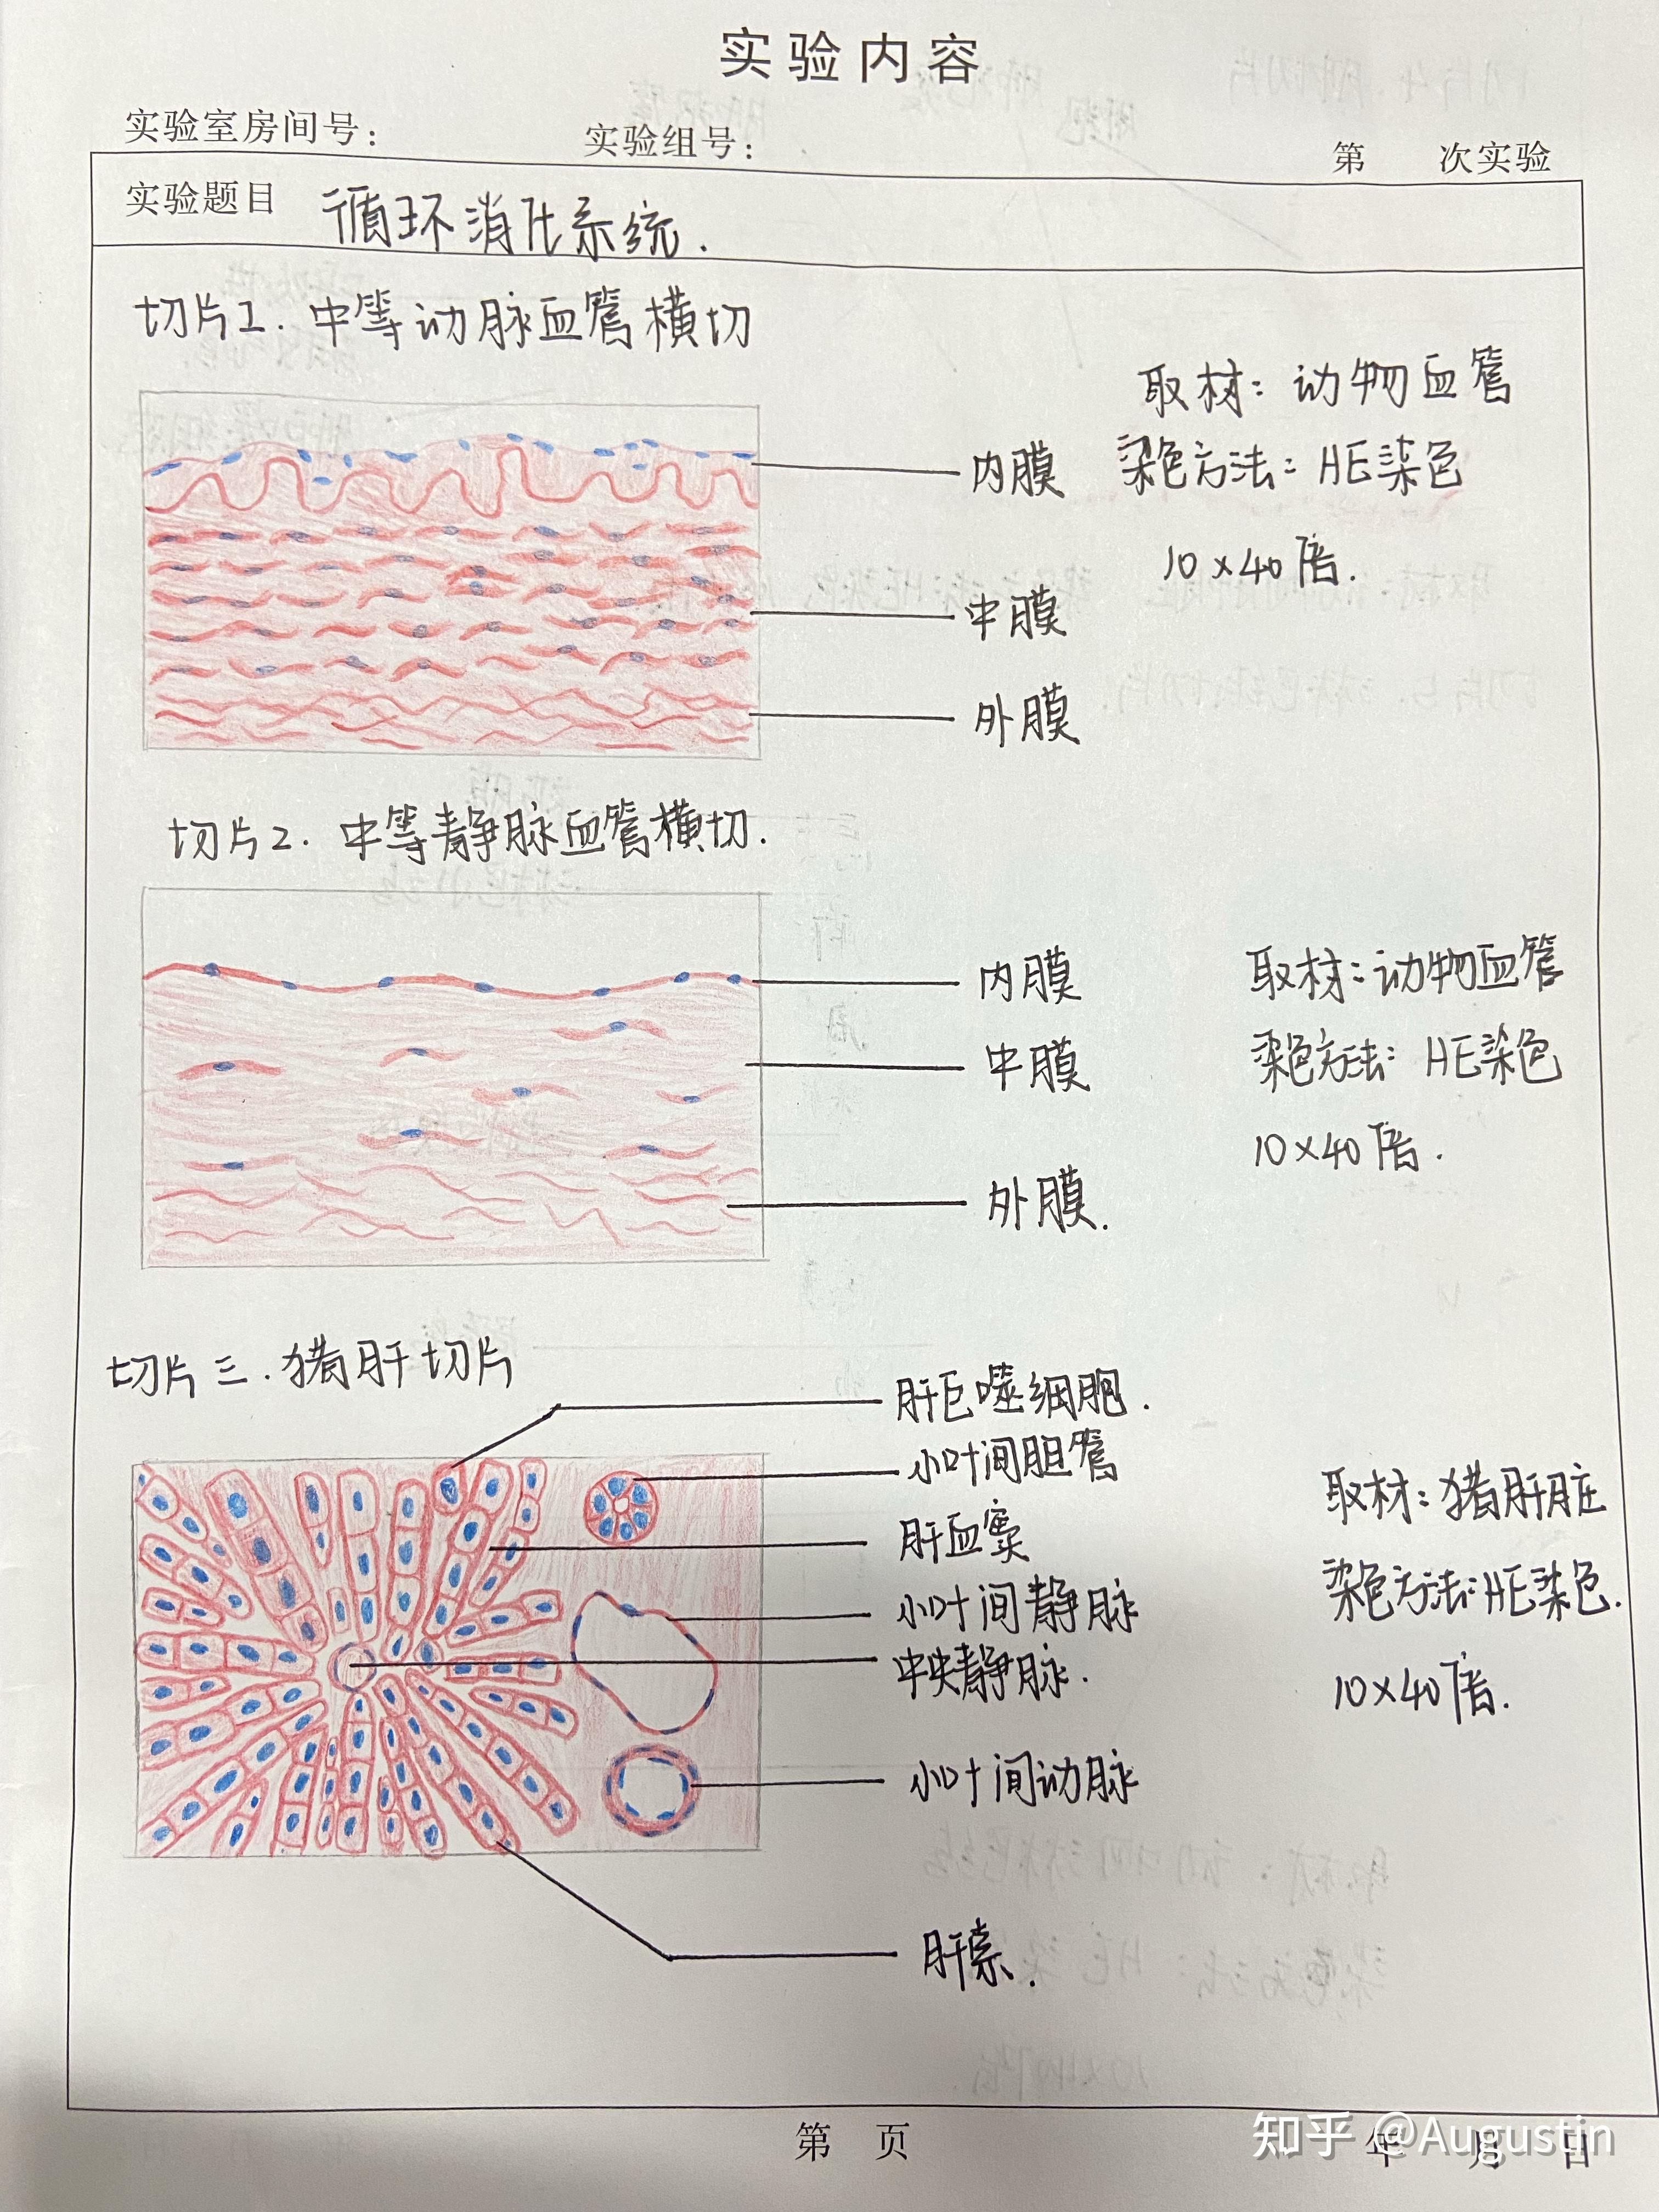 实验内容
实验室房间号： 实验组号： 第 次实验
实验题目 循环消化系统.
切片1. 中等动脉血管横切
取材：动物血管
内膜 染色方法：HE染色
10×40倍.
中膜
外膜
切片2. 中等静脉血管横切.
内膜 取材：动物血管
中膜 染色方法：HE染色
10×40倍.
外膜.
切片三. 猪肝切片
肝巨噬细胞.
小叶间胆管
取材：猪肝脏
肝血窦
小叶间静脉 染色方法：HE染色.
中央静脉.
10×40倍.
小叶间动脉
肝索.
第 页
年 月 日
知乎 @Augustin